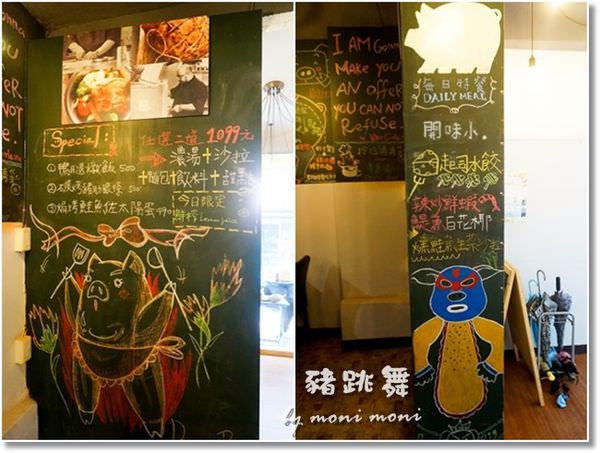 Special:
任選二道 1099元
濃湯+沙拉
+麵包+飲料+甜點
①鴨腿燉飯 500
③焗烤鮭魚佐太陽蛋 490
今日限定
I AM Gonna
Make you
AN offer
you CAN NOT
Refuse
每日特餐
DAILY MEAL
開味小.
起司水餃
辣炒鮮蝦
鯷魚白花椰
燻鮭魚生菜沙拉
豬跳舞
by moni moni